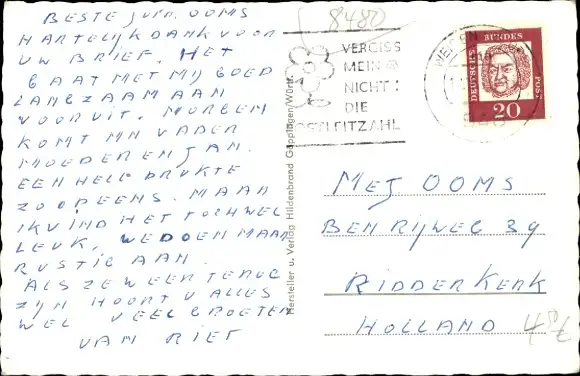 BESTE JUFR. OOMS
HARTELIJK DANK VOOR
UW BRIEF. HET
GAAT MET MIJ GOED
LANGZAAM AAN
VOORUIT. MORGEN
KOMT MN VADER
MOEDER EN JAN.
EEN HELE DRUKTE
ZO OPEENS. MAAR
IK VIND HET TOCH WEL
LEUK, WE DOEN MAAR
RUSTIG AAN.
ALS ZE WEER TERUG
ZIJN HOORT U ALLES
WEL VEEL GROETEN
VAN RIET
Hersteller u. Verlag Hildenbrand Göppingen/Württ.
8480
VERGISS
MEIN
NICHT:
DIE
POSTLEITZAHL
DEUTSCHE
BUNDES
POST
20
MEJ OOMS
BEN RIJWEG 39
RIDDERKERK
HOLLAND